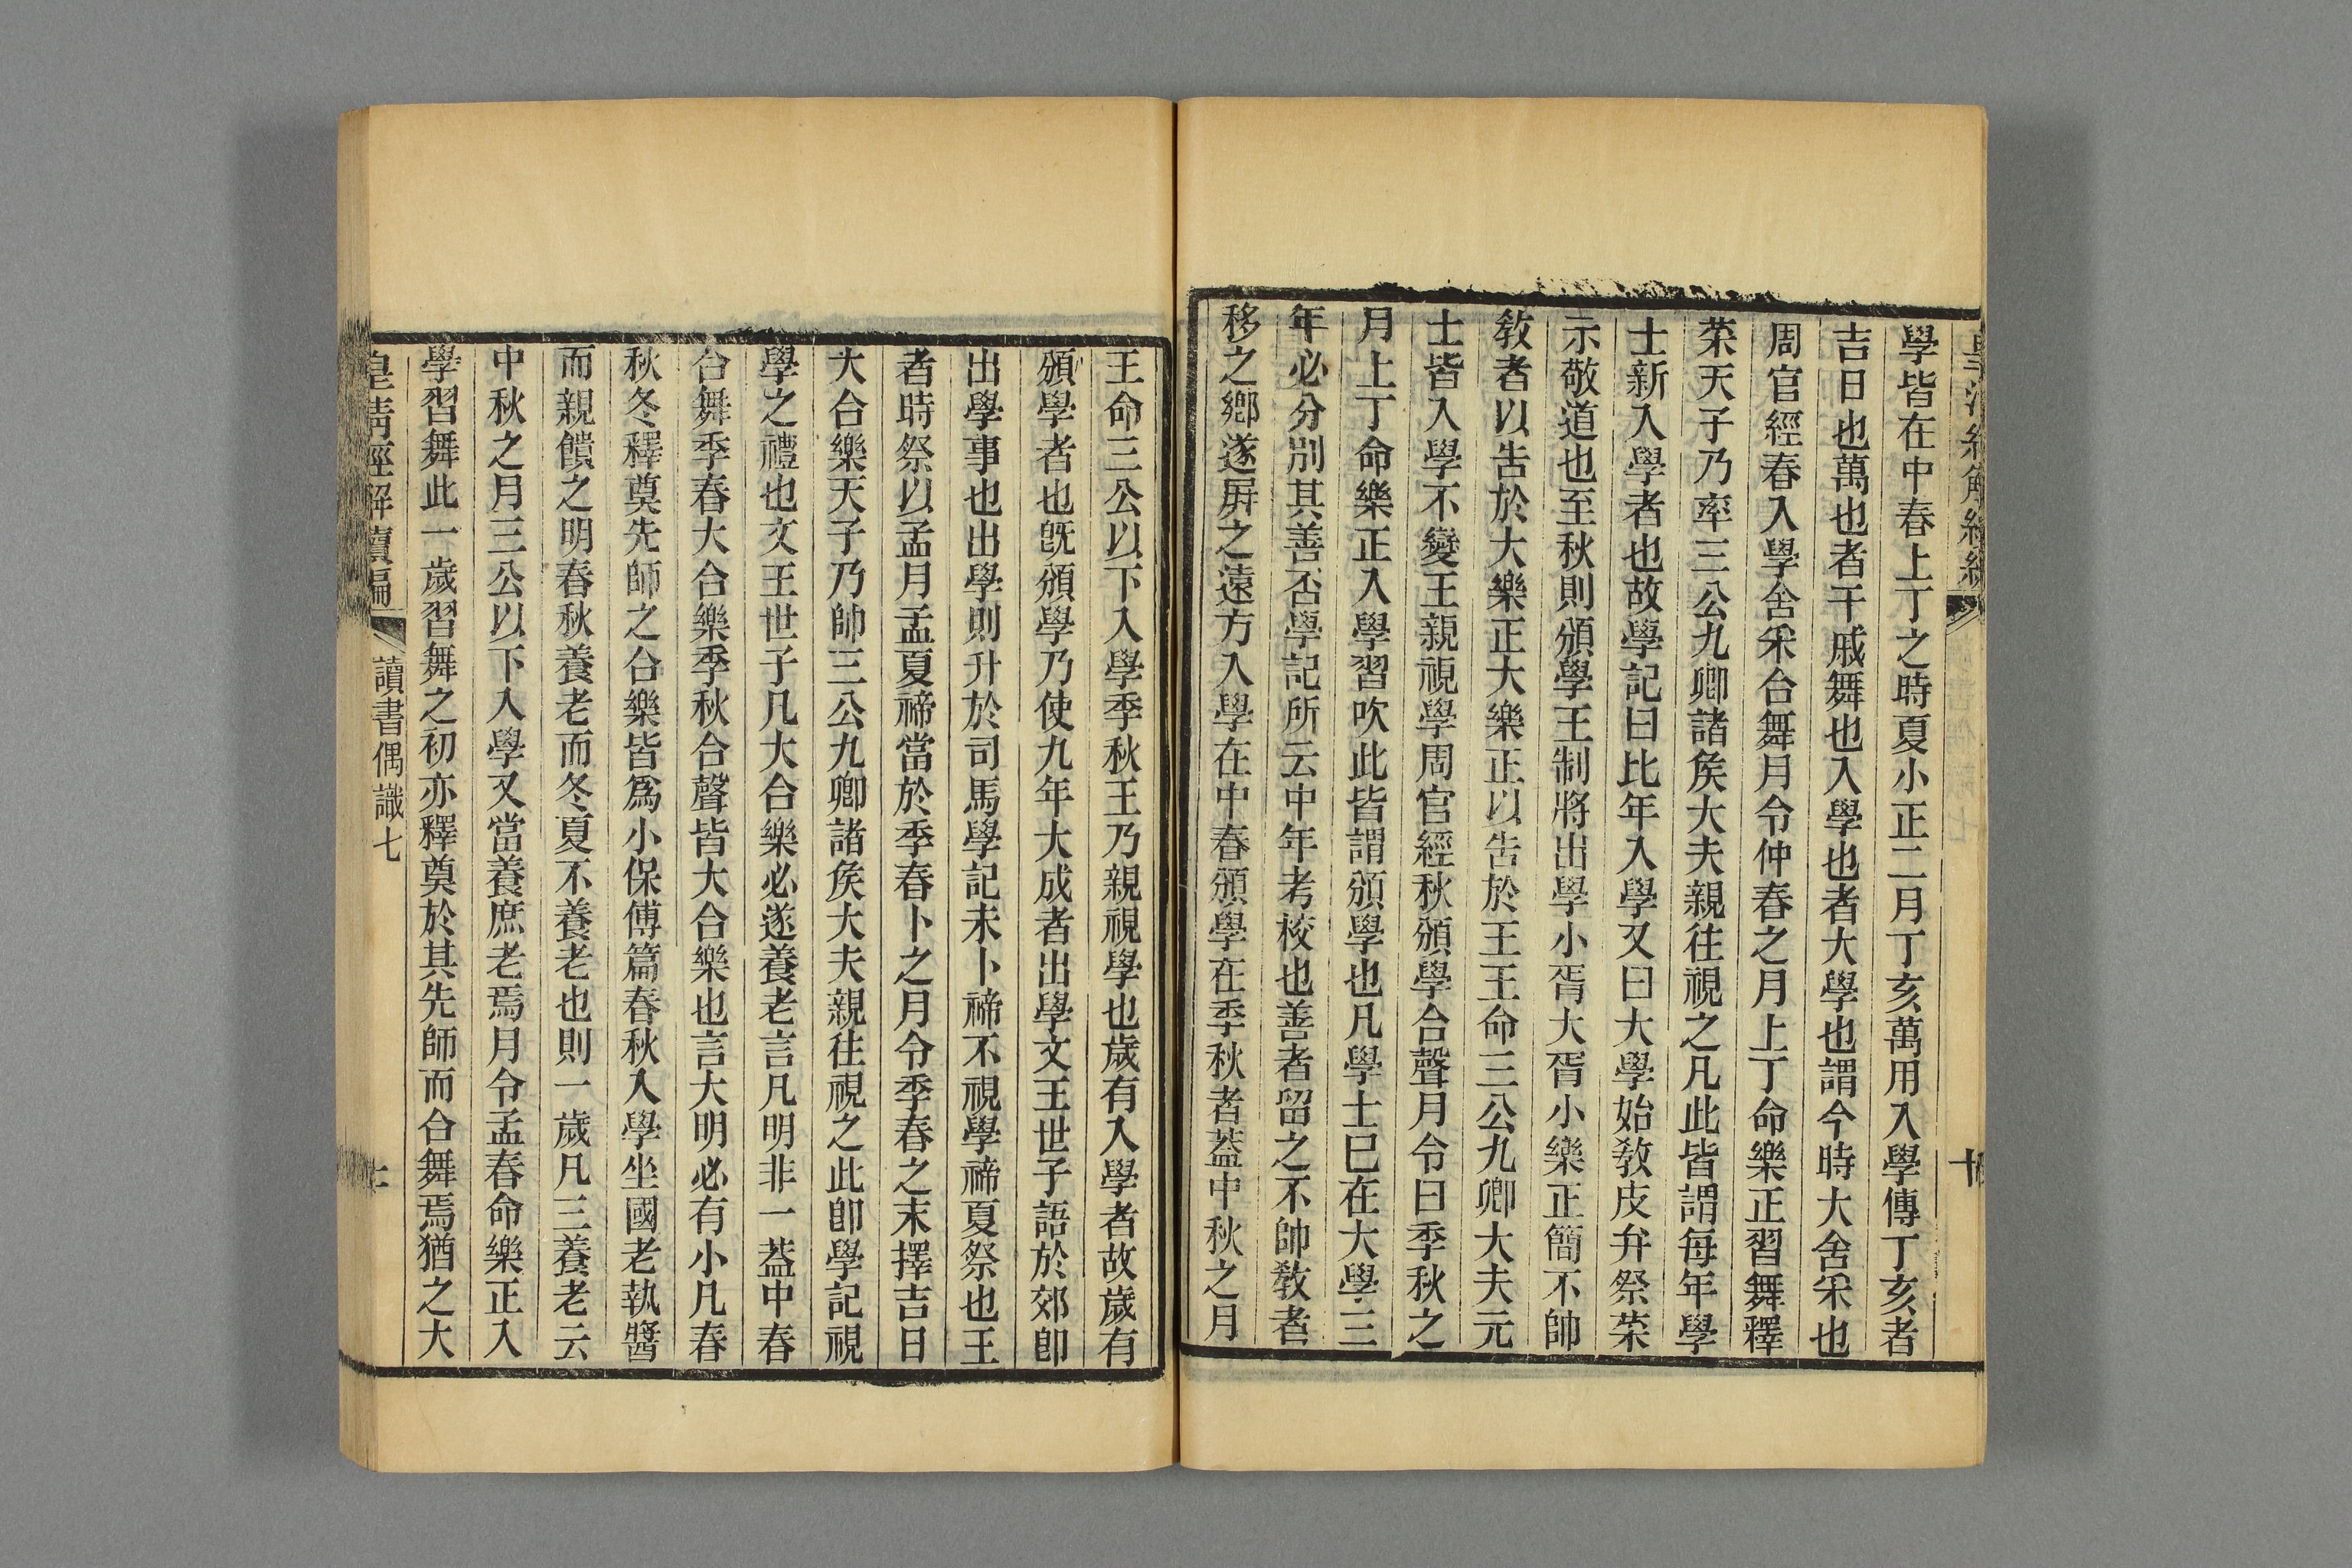 學皆在中春上丁之時夏小正二月丁亥萬用入學傳丁亥者
吉日也萬也者干戚舞也入學也者大學也謂今時大舍采也
周官經春入學舍采合舞月令仲春之月上丁命樂正習舞釋
菜天子乃率三公九卿諸矦大夫親往視之凡此皆謂每年學
士新入學者也故學記曰比年入學又曰大學始敎皮弁祭菜
示敬道也至秋則頒學王制將出學小胥大胥小樂正簡不帥
敎者以吿於大樂正大樂正以吿於王王命三公九卿大夫元
士皆入學不變王親視學周官經秋頒學合聲月令曰季秋之
月上丁命樂正入學習吹此皆謂頒學也凡學士已在大學三
年必分別其善否學記所云中年考校也善者留之不帥敎者
移之鄉遂屛之遠方入學在中春頒學在季秋者葢中秋之月
王命三公以下入學季秋王乃親視學也歲有入學者故歲有
頒學者也旣頒學乃使九年大成者出學文王世子語於郊卽
出學事也出學則升於司馬學記未卜禘不視學禘夏祭也王
者時祭以孟月孟夏禘當於季春卜之月令季春之末擇吉日
大合樂天子乃帥三公九卿諸矦大夫親往視之此卽學記視
學之禮也文王世子凡大合樂必遂養老言凡明非一葢中春
合舞季春大合樂季秋合聲皆大合樂也言大明必有小凡春
秋冬釋奠先師之合樂皆爲小保傅篇春秋入學坐國老執醬
而親饋之明春秋養老而冬夏不養老也則一歲凡三養老云
中秋之月三公以下入學又當養庶老焉月令孟春命樂正入
學習舞此一歲習舞之初亦釋奠於其先師而合舞焉猶之大
皇淸經解續編
讀書偶識七